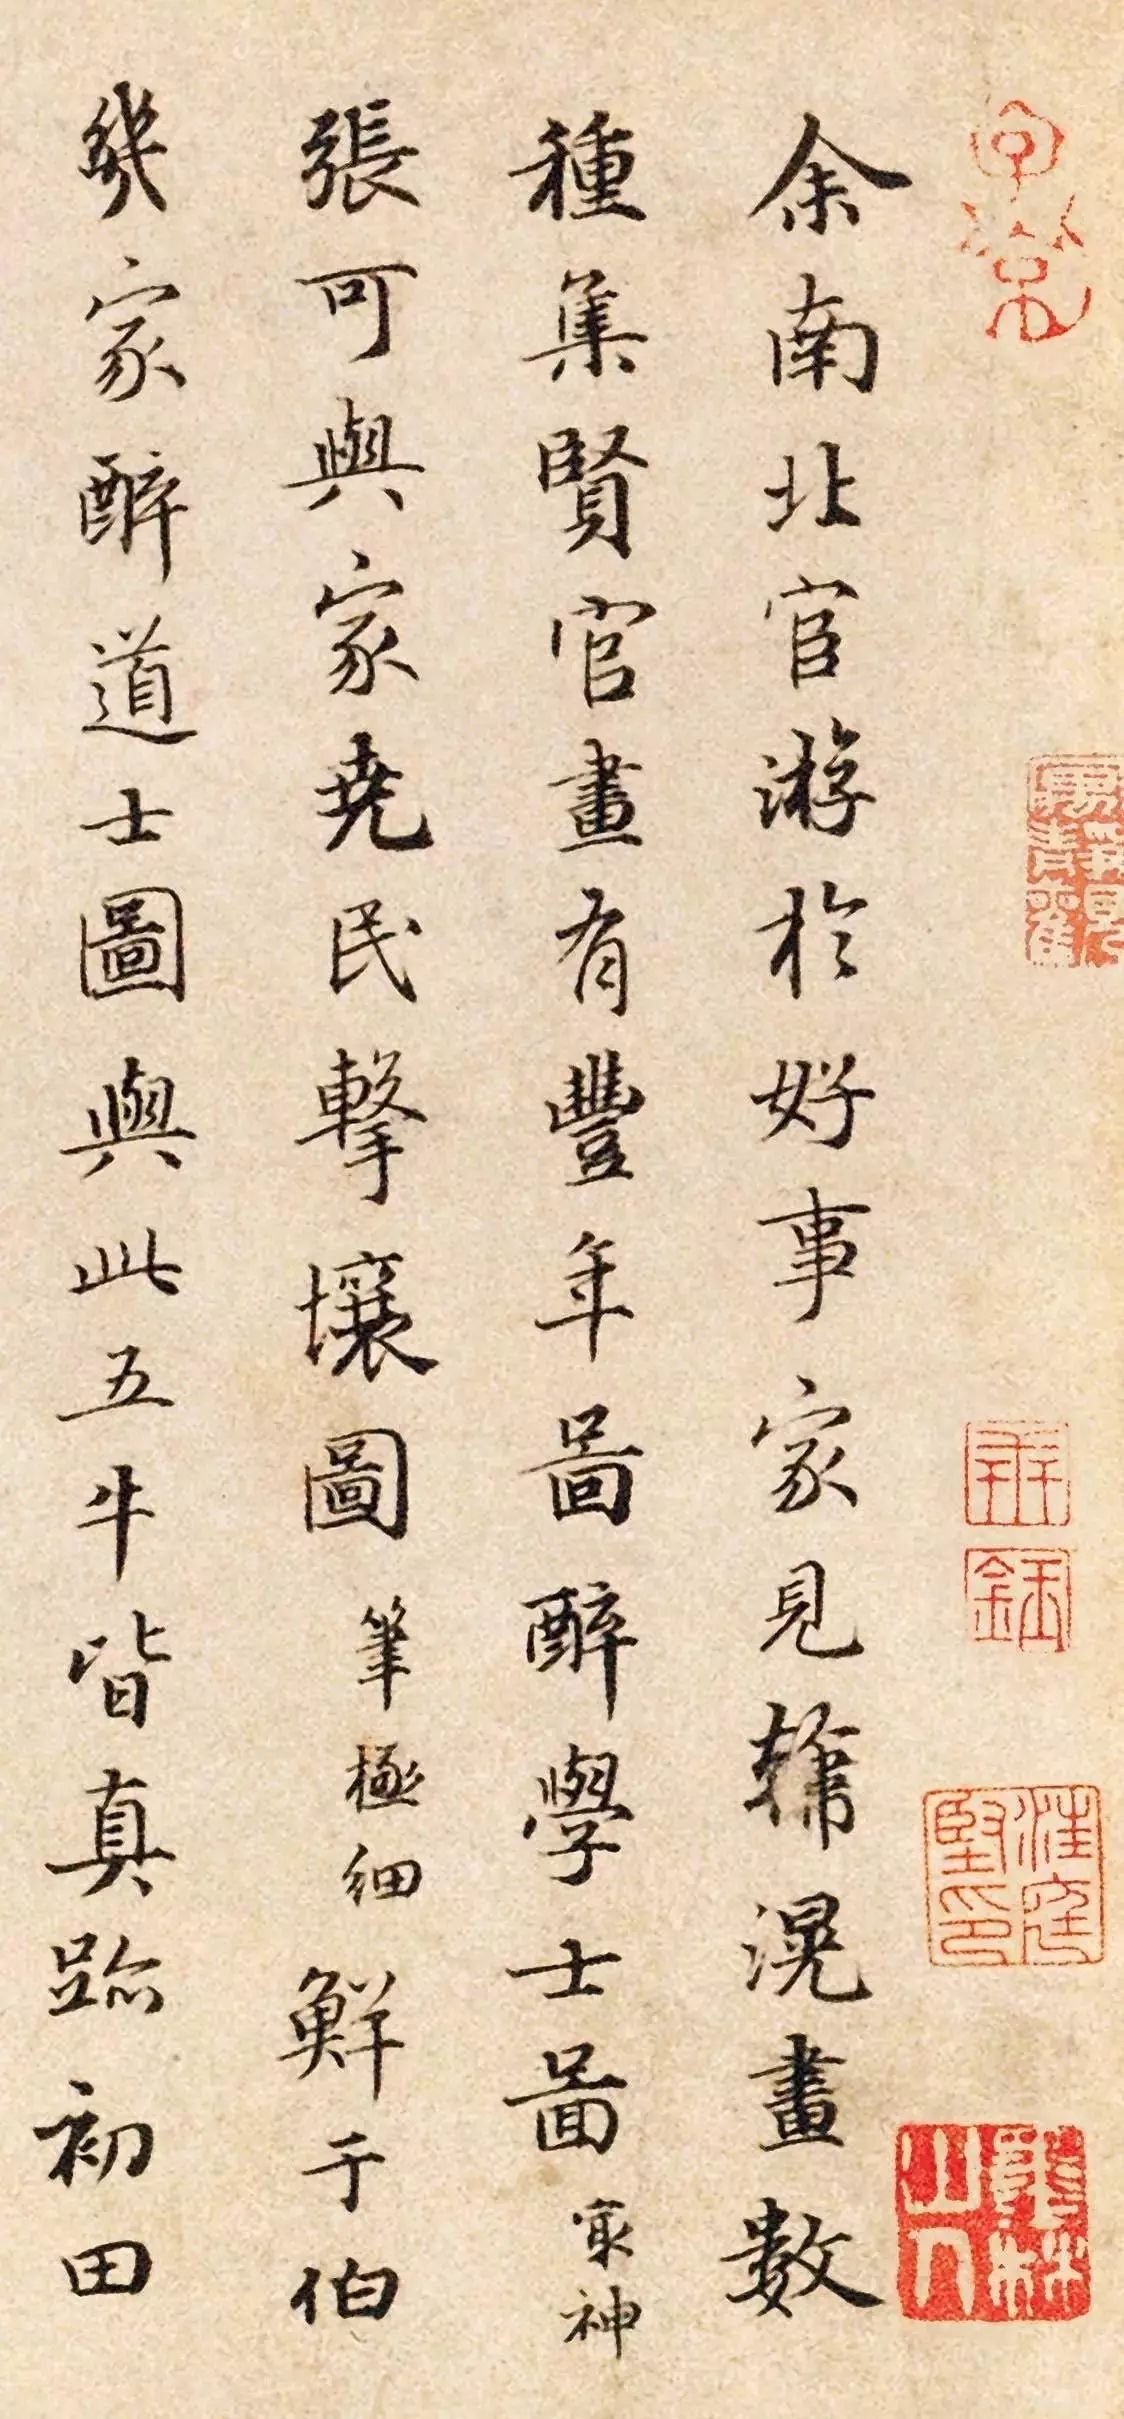 余南北宦游於好事家見韓滉畫數
種集賢官畫有豐年圖醉學士圖㝡神
張可與家堯民擊壤圖筆極細鮮于伯
幾家醉道士圖與此五牛皆真跡初田
汪庭堅印